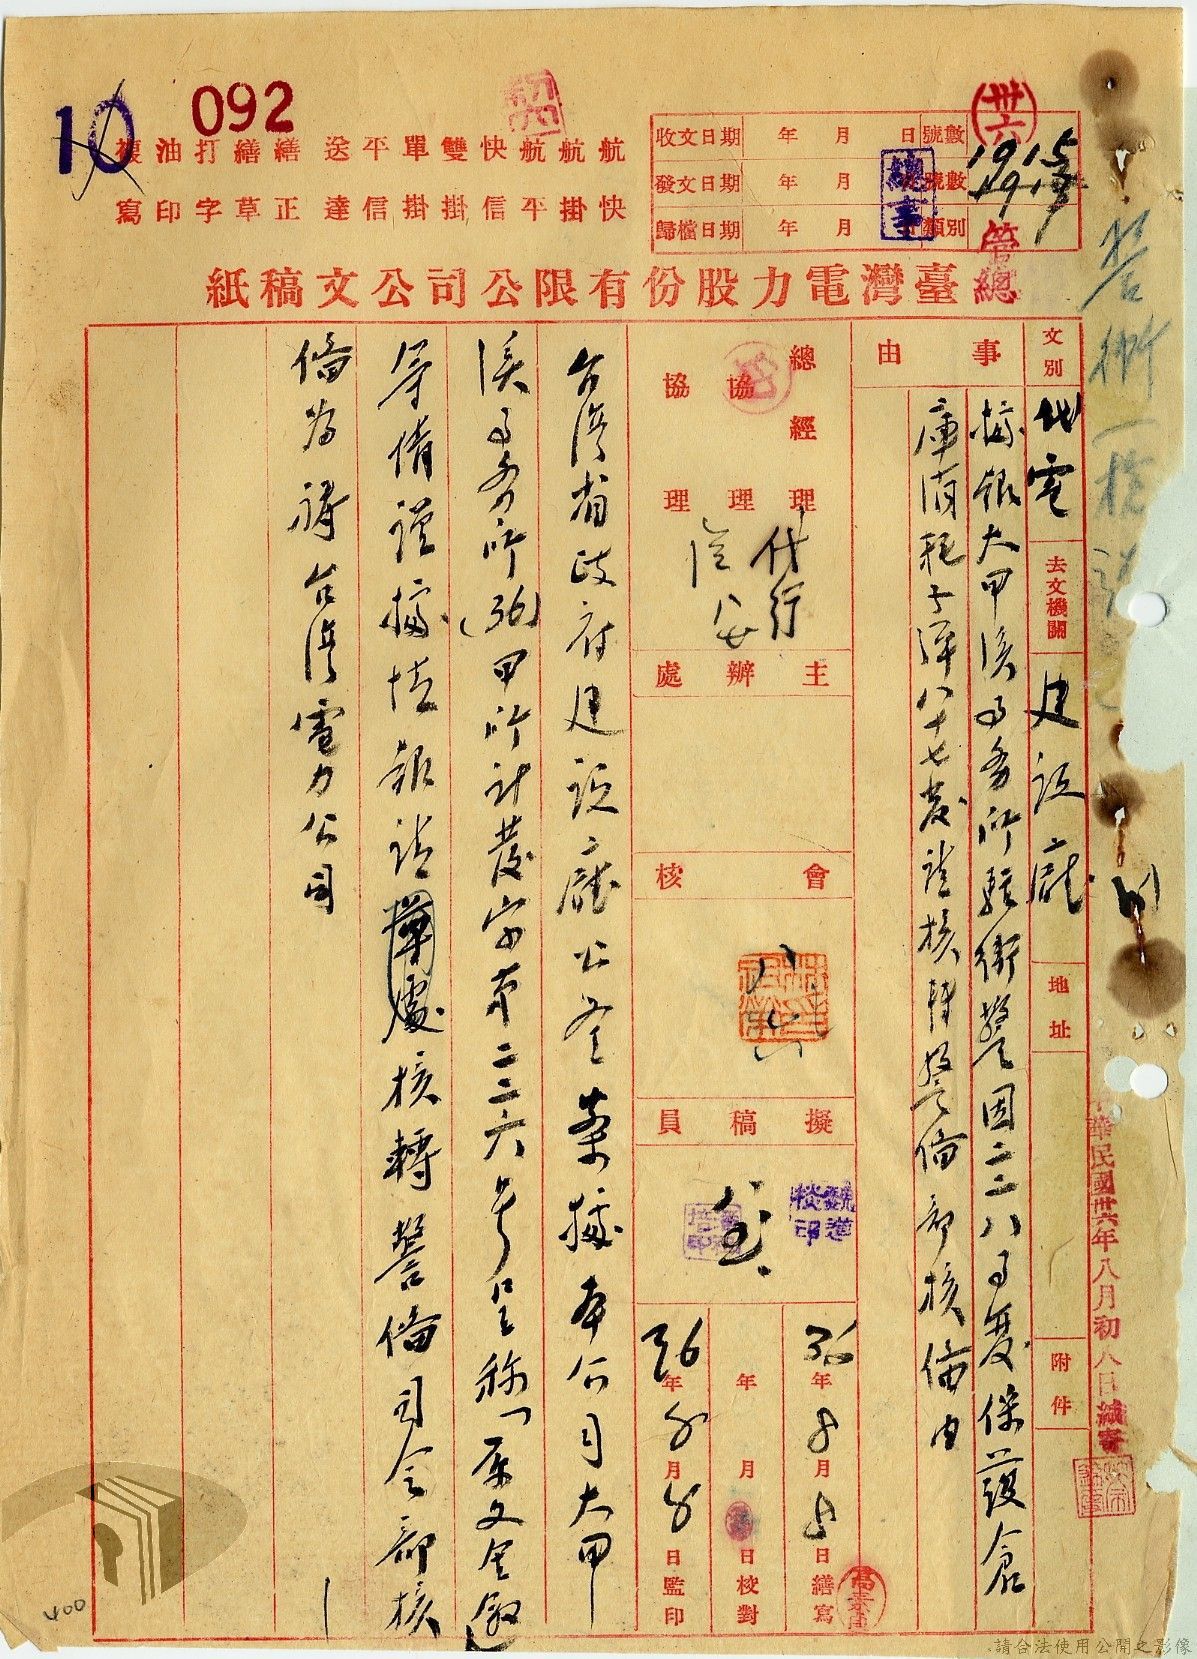 10
092
航快
航掛
航平
快信
雙掛
單掛
平信
送達
繕正
繕草
打字
油印
複寫
收文日期 年 月 日 號數
發文日期 年 月 號數
歸檔日期 年 月 類別
卅六
總臺灣電力股份有限公司公文稿紙
文別 代電 去文機關 建設廳 地址 附件
事由
據報大甲溪事務所駐衛警因二二八事變保護倉
庫消耗子彈八十七發請核轉警備部核備由
總經理 代行
協理
協理
主辦處
會核
擬稿員
36年8月8日繕寫
年 月 日校對
36年8月8日監印
台灣省政府建設廳公鑒案據本公司大甲
溪事務所(36)甲所計發字第二二六號呈稱「原文全敘」
等情謹據情報請鑒核轉警備司令部核
備為禱台灣電力公司
中華民國卅六年八月初八日繕寄
400
請合法使用公開之影像